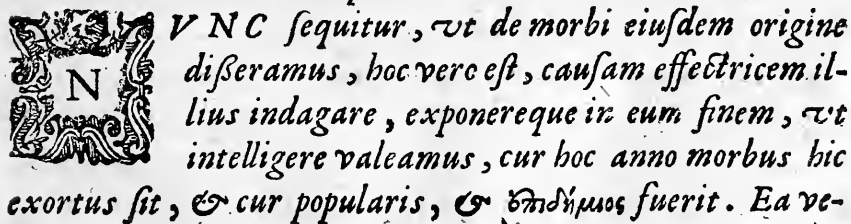 NVNC ſequitur, vt de morbi eiuſdem origine
dißeramus, hoc vero eſt, cauſam effectricem il-
lius indagare, exponereque in eum finem, vt
intelligere valeamus, cur hoc anno morbus hic
exortus ſit, & cur popularis, & ἐπιδήμιος fuerit. Ea ve-